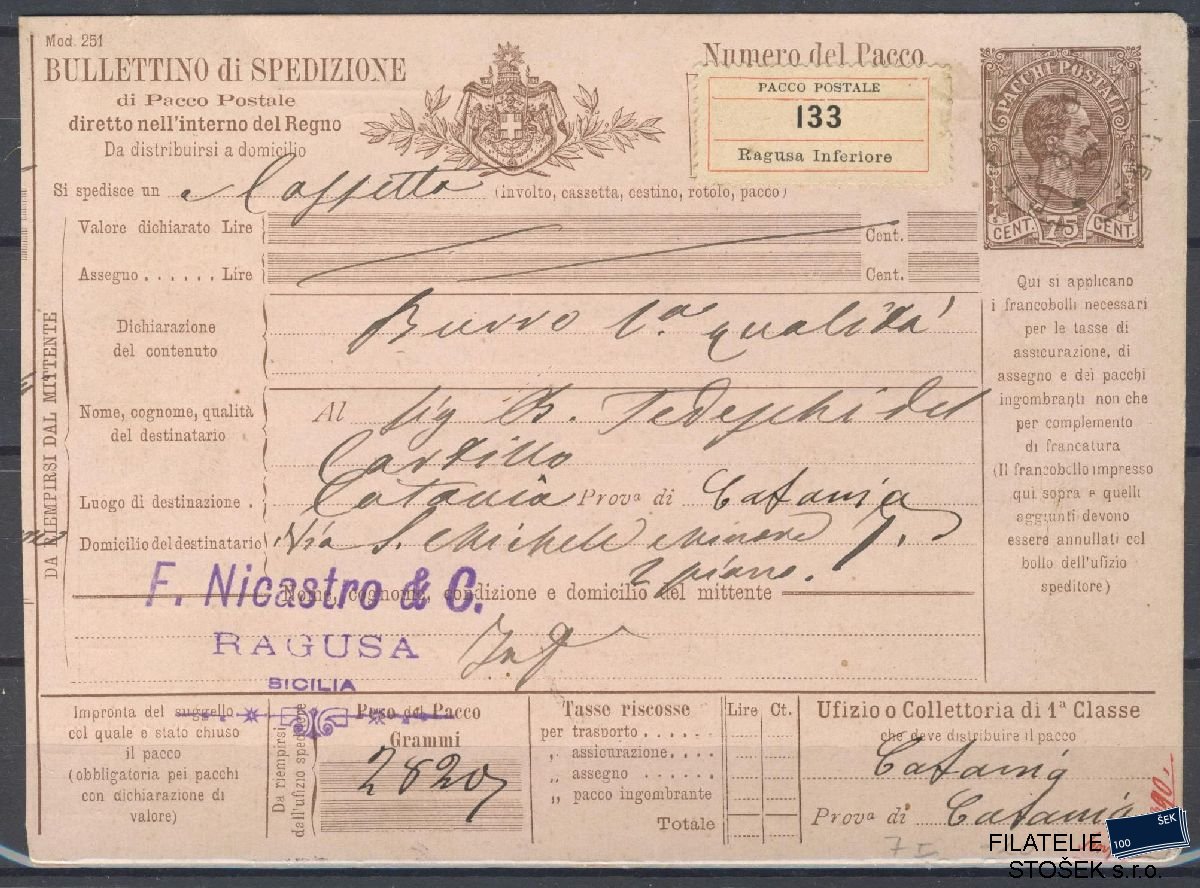 Mod. 251
BULLETTINO di SPEDIZIONE
di Pacco Postale
diretto nell'interno del Regno
Da distribuirsi a domicilio
Numero del Pacco
PACCO POSTALE
133
Ragusa Inferiore
PACCHI POSTALI
CENT. 75 CENT.
Si spedisce un Cassetta (involto, cassetta, cestino, rotolo, pacco)
Valore dichiarato Lire Cent.
Assegno ...... Lire Cent.
DA RIEMPIRSI DAL MITTENTE
Dichiarazione
del contenuto
Burro 1.a qualità
Nome, cognome, qualità
del destinatario
Al Sig B. Tedeschi del
Castillo
Luogo di destinazione . Catania Prova di Catania
Domicilio del destinatario Via S. Michele Minore 7.
2 piano.
Nome, cognome, condizione e domicilio del mittente
F. Nicastro & C.
RAGUSA
SICILIA
Qui si applicano
i francobolli necessari
per le tasse di
assicurazione, di
assegno e dei pacchi
ingombranti non che
per complemento
di francatura
(Il francobollo impresso
qui sopra e quelli
aggiunti devono
essere annullati col
bollo dell'ufizio
speditore)
Impronta del suggello
col quale e stato chiuso
il pacco
(obbligatoria pei pacchi
con dichiarazione di
valore)
Da riempirsi
dall'ufizio speditore
Peso del Pacco
Grammi
2820
Tasse riscosse Lire Ct.
per trasporto ......
„ assicurazione....
„ assegno ......
„ pacco ingombrante
Totale
Ufizio o Collettoria di 1a Classe
che deve distribuire il pacco
Catania
Prova di Catania
FILATELIE
STOŠEK s.r.o.
100 ŠEK